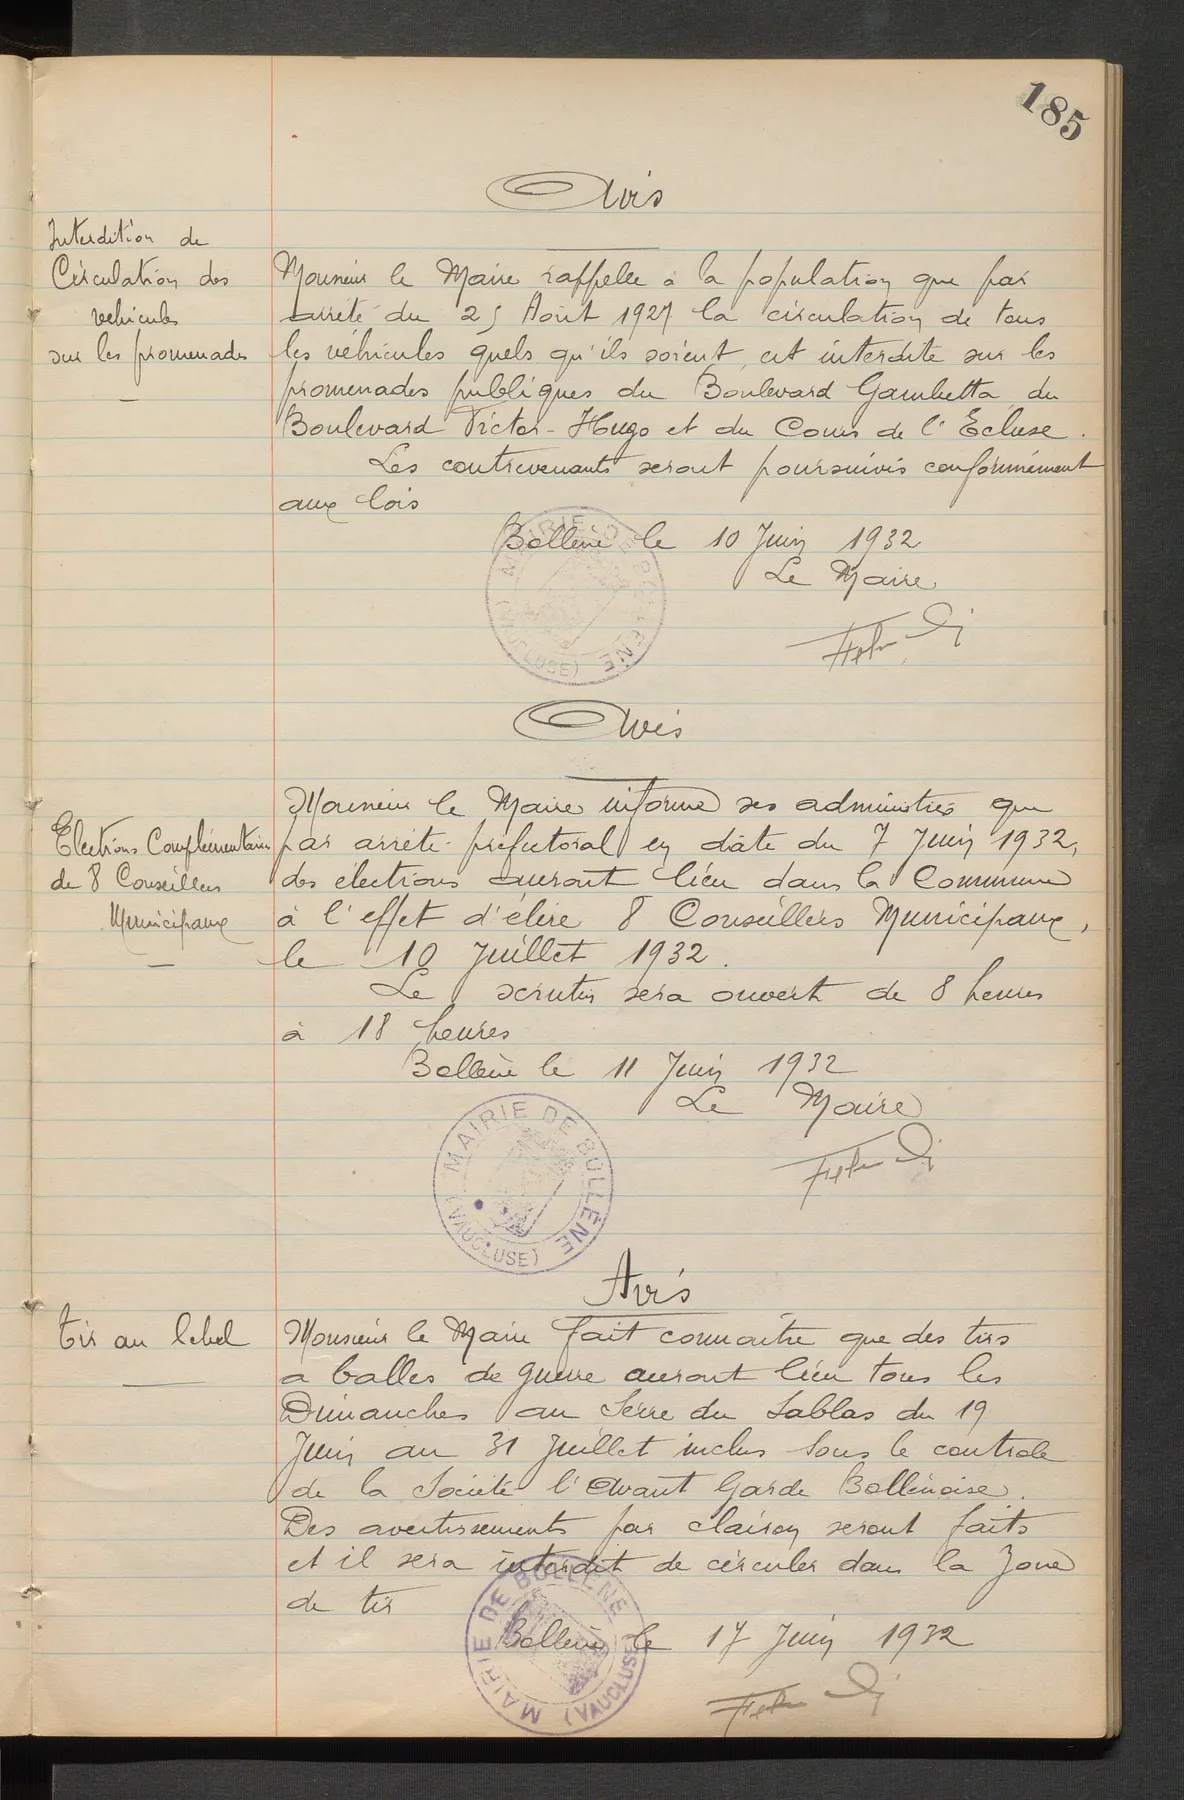 185
Avis
Interdition de
Circulation des
vehicules
sur les promenades
Monsieur le Maire rappelle à la population que par
arrêté du 25 Août 1927 la circulation de tous
les véhicules quels qu'ils soient, est interdite sur les
promenades publiques du Boulevard Gambetta, du
Boulevard Victor-Hugo et du Cours de l'Ecluse.
Les contrevenants seront poursuivis conformément
aux lois
Bollène le 10 Juin 1932
Le Maire
MAIRIE DE BOLLÈNE
(VAUCLUSE)
Avis
Elections Complémentaires
de 8 Conseillers
Municipaux
Monsieur le Maire informe ses administrés que
par arrêté préfectoral en date du 7 Juin 1932,
des élections auront lieu dans la Commune
à l'effet d'élire 8 Conseillers Municipaux,
le 10 Juillet 1932.
Le scrutin sera ouvert de 8 heures
à 18 heures
Bollène le 11 Juin 1932
Le Maire
MAIRIE DE BOLLÈNE
(VAUCLUSE)
Avis
Tir au lebel
Monsieur le Maire fait connaitre que des tirs
a balles de guerre auront lieu tous les
Dimanches au Serre du Sablas du 19
Juin au 31 Juillet inclus sous le controle
de la Société l'Avant Garde Bollènoise.
Des avertissements par clairon seront faits
et il sera interdit de circuler dans la zone
de tir
Bollène le 17 Juin 1932
MAIRIE DE BOLLÈNE
(VAUCLUSE)